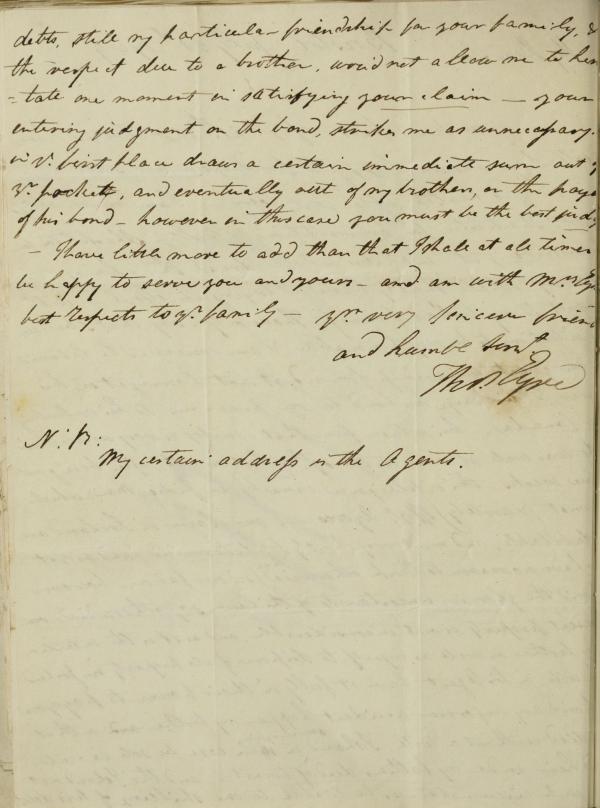 debts, still my particular friendship for your family, &
the respect due to a brother, would not allow me to hesi
-tate one moment in satisfying your claim — your
entering judgment on the bond, strikes me as unnecessary.
in ye. first place draws a certain immediate sum out of
yr. pocket, and eventually out of my brothers, on the paym
of his bond — however in this case you must be the best judge
— I have little more to add than that I shall at all times
be happy to serve you and yours — and am with Mrs Eyre
best respects to yr. family — yr. very sincere friend
and humble servt.
Thos Eyre
N: B:
My certain address is the Agents.